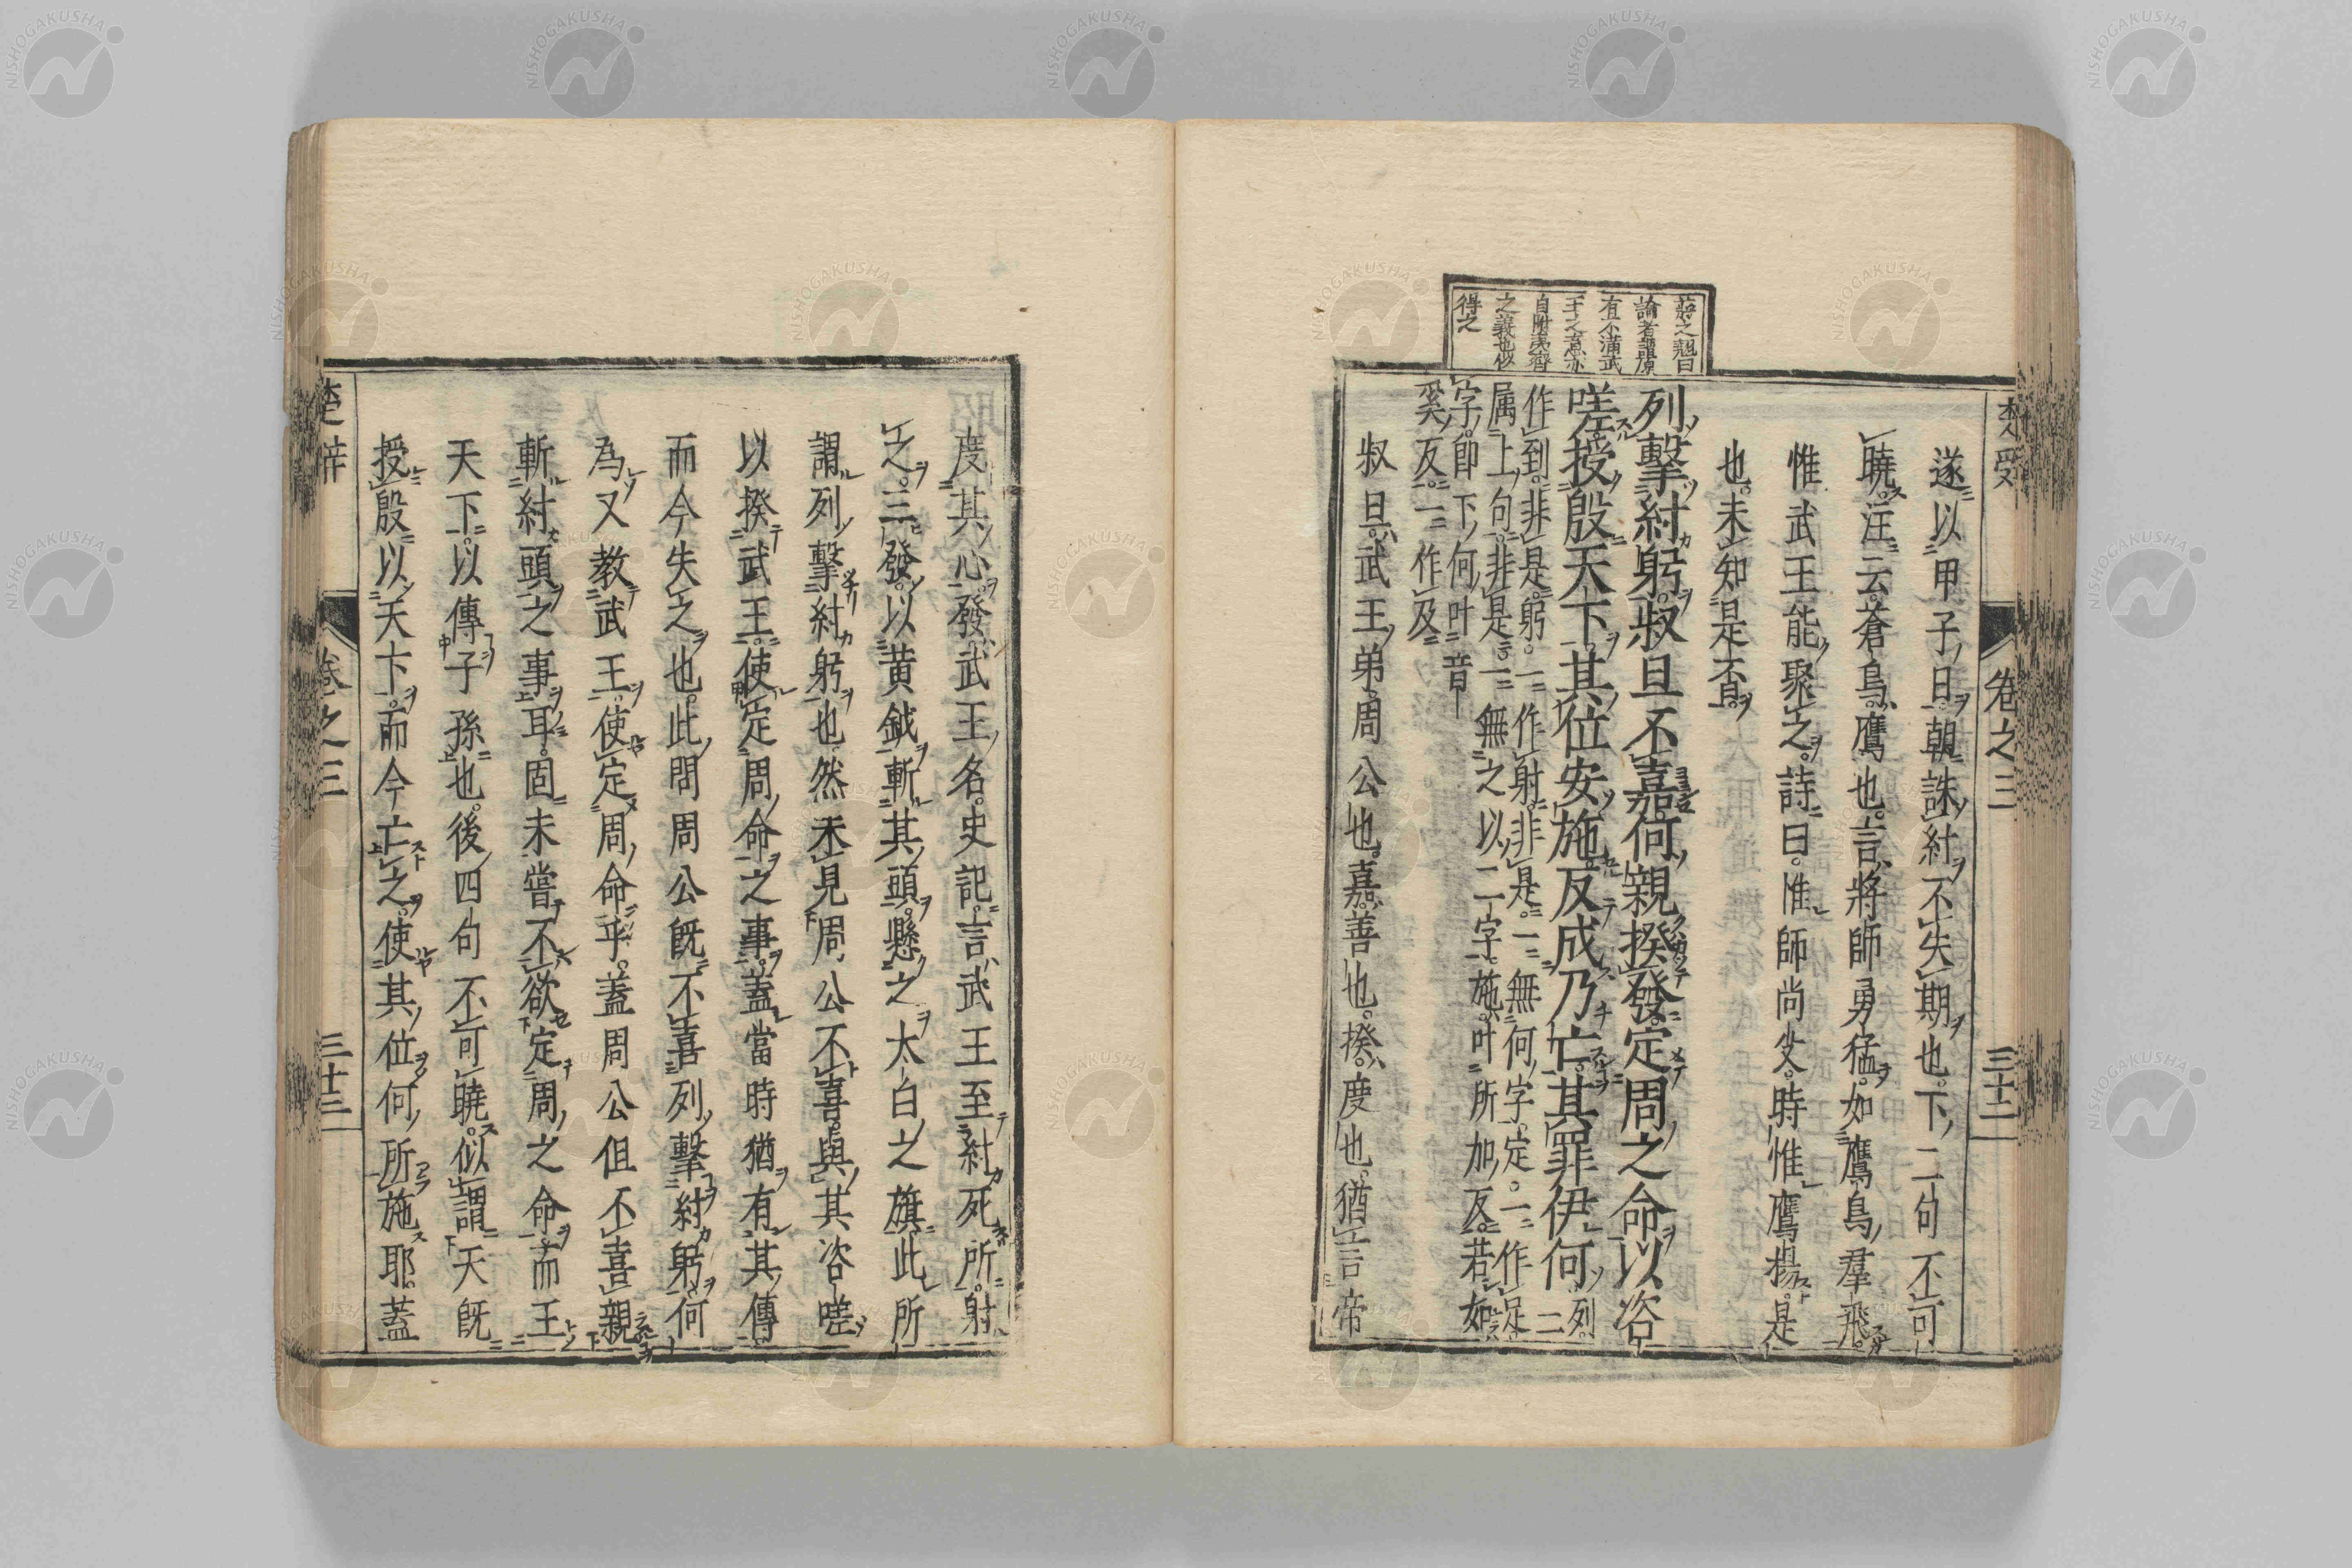 楚辞
卷之三
三十二
遂以甲子日朝誅紂不失期也下二句不可
曉注云蒼鳥鷹也言將師勇猛如鷹鳥羣飛
惟武王能聚之詩曰惟師尚父時惟鷹揚是
也未知是否
列擊紂躬叔旦不嘉何親揆發定周之命以咨
嗟授殷天下其位安施反成乃亡其罪伊何列
一
作到非是躬一作射非是一無何字定一作足
属上句非是一無之以二字施叶所加反若如
字即下何叶音
奚反一作及
叔旦武王弟周公也嘉善也揆度也猶言帝
論者謂原
有不滿武
王之意亦
自附夷齊
之義也似
得之
度其心發武王名史記言武王至紂死所射
之三發以黄鉞斬其頭懸之太白之旗此所
謂列擊紂躬也然未見周公不喜與其咨嗟
以揆武王使定周命之事蓋當時猶有其傳
而今失之也此問周公既不喜列擊紂躬何
為又教武王使定周命乎蓋周公但不喜親
斬紂頭之事耳固未嘗不欲定周之命而王
天下以傳子孫也後四句不可曉似謂天既
授殷以天下而今亡之使其位何所施耶蓋
楚辞
卷之三
三十三
NISHOGAKUSHA